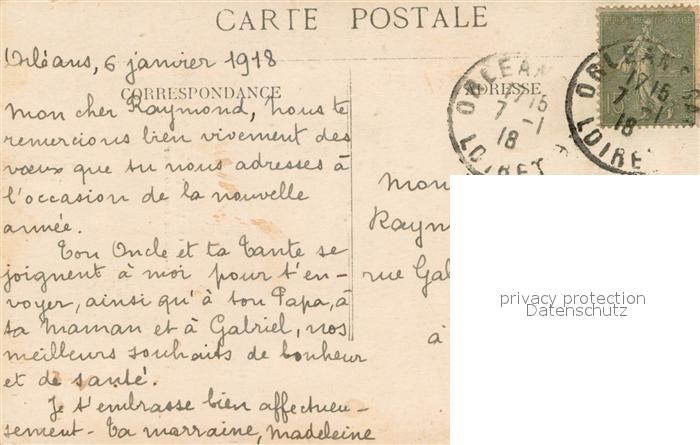 CARTE POSTALE
Orléans, 6 janvier 1918
CORRESPONDANCE
Mon cher Raymond, nous te
remercions bien vivement des
vœux que tu nous adresses à
l'occasion de la nouvelle
année.
Ton Oncle et ta Tante se
joignent à moi pour t'en-
voyer, ainsi qu'à ton Papa, à
ta Maman et à Gabriel, nos
meilleurs souhaits de bonheur
et de santé.
Je t'embrasse bien affectueu-
sement - Ta marraine, Madeleine
ADRESSE
ORLEANS
17 15
7 -1
18
LOIRET
ORLEANS
17 15
7 -1
18
LOIRET
Mon
Raym
rue Gab
à
privacy protection
Datenschutz